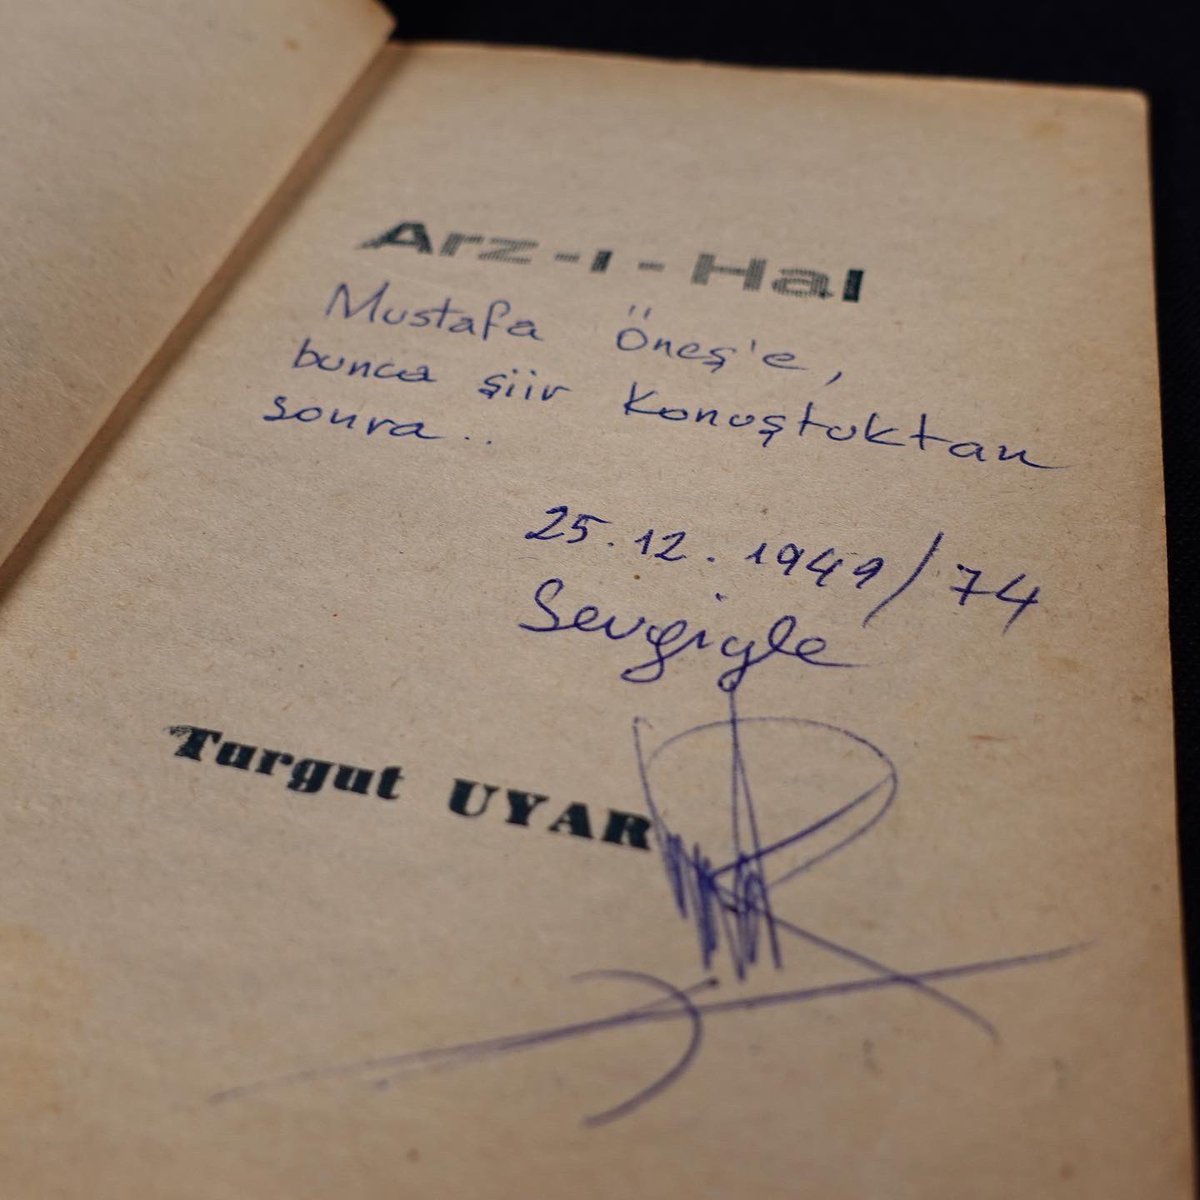 Arz-ı-Hal
Mustafa Öneş'e,
bunca şiir konuştuktan
sonra..
25.12.1949/74
Sevgiyle
Turgut UYAR